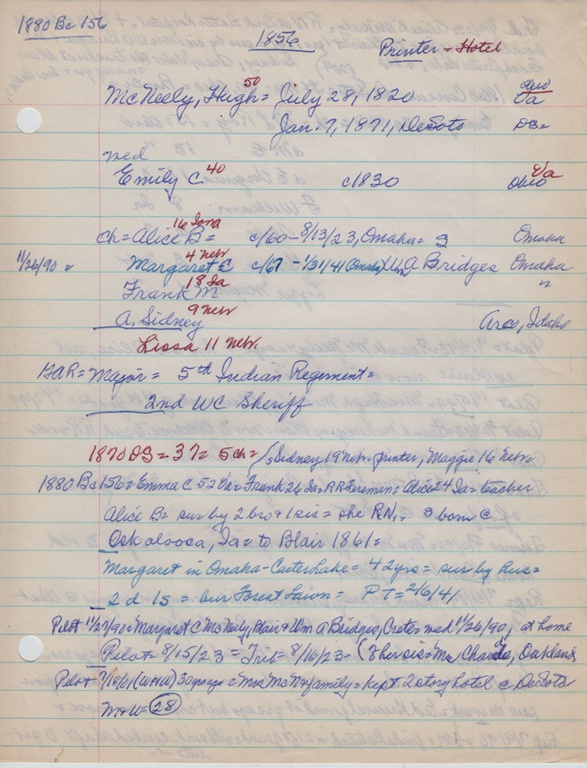 1880 Bc 156
1856
Printer - Hotel
McNeely, Hugh = 50 July 28, 1820 Ohio Va
Jan. 7, 1871, DeSoto DS=
med
Emily C 40 c1830 Ohio Va
ch = Alice B = 16 Iowa c/60 - 8/13/23, Omaha = S Omaha
11/26/90 = Margaret C 4 Nebr c/67 - 1/31/41 (Omaha) Wm A Bridges Omaha
Frank M 18 Ia "
A. Sidney 9 Nebr Arco, Idaho
Lissa 11 Nebr.
GAR = Major = 5th Indian Regiment =
2nd WC Sheriff
1870 DS = 37 = 5 ch = Sidney 19 Nebr. printer, Maggie 16 Nebr.
1880 Bc 156 = Emma C 52 Va = Frank 26 Ia = RR Firemn = Alice 24 Ia = teacher
Alice B = sur by 2 bro + 1 sis = she RN, born @
Oskaloosa, Ia = to Blair 1861 =
Margaret in Omaha - Carter Lake = 42 yrs = sur by Hus =
2 d 1 S = bur Forest Lawn = PT = 2/6/41
Pilot 11/27/90 = Margaret C McNeely, Blair & Wm A Bridges, Crete = med 11/26/90, at home
Pilot 8/15/23 = Trib = 8/16/23 - (Her sis = Mrs , Oakland
Pilot (W+W) 30 yrs ago = Mrs McN + family = kept 2 story hotel @ DeSoto
M + W = 28